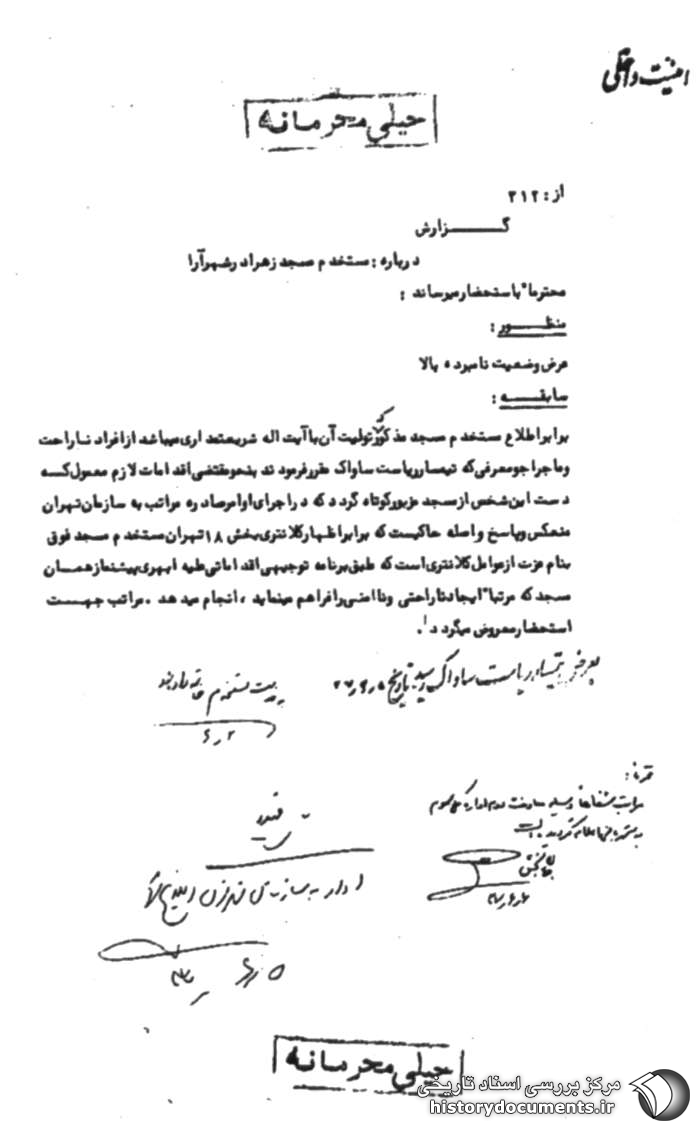 امنیت داخلی
خیلی محرمانه
از : ۳۱۲
گزارش
درباره : مستخدم مسجد زهرا در شهرآرا
محترما" باستحضار میرساند :
منظور :
عرض وضعیت نامبرده بالا
سابقه :
برابر اطلاع مستخدم مسجد مذکور که تولیت آن با آیت اله شریعتمداری میباشد از افراد ناراحت
و ماجراجو معرفی که تیمسار ریاست ساواک مقرر فرمودند بنحو مقتضی اقدامات لازم معمول که
دست این شخص از مسجد مزبور کوتاه گردد که در اجرای اوامر صادره مراتب به سازمان تهران
منعکس و پاسخ واصله حاکیست که برابر اظهار کلانتری بخش ۱۸ تهران مستخدم مسجد فوق
بنام عزت از عوامل کلانتری است که طبق برنامه توجیهی اقداماتی علیه ابهری پیشنماز همان
مسجد که مرتبا" ایجاد ناراحتی و ناامنی را فراهم مینماید ، انجام میدهد . مراتب جهت
استحضار معروض میگردد .
بعرض تیمسار ریاست ساواک رسید بتاریخ
مستخدم خاتمه دادند
۶ر۲
قربان :
مراتب شفاها
اداره به سازمان تهران ابلاغ
۵
خیلی محرمانه
مرکز بررسی اسناد تاریخی
historydocuments.ir